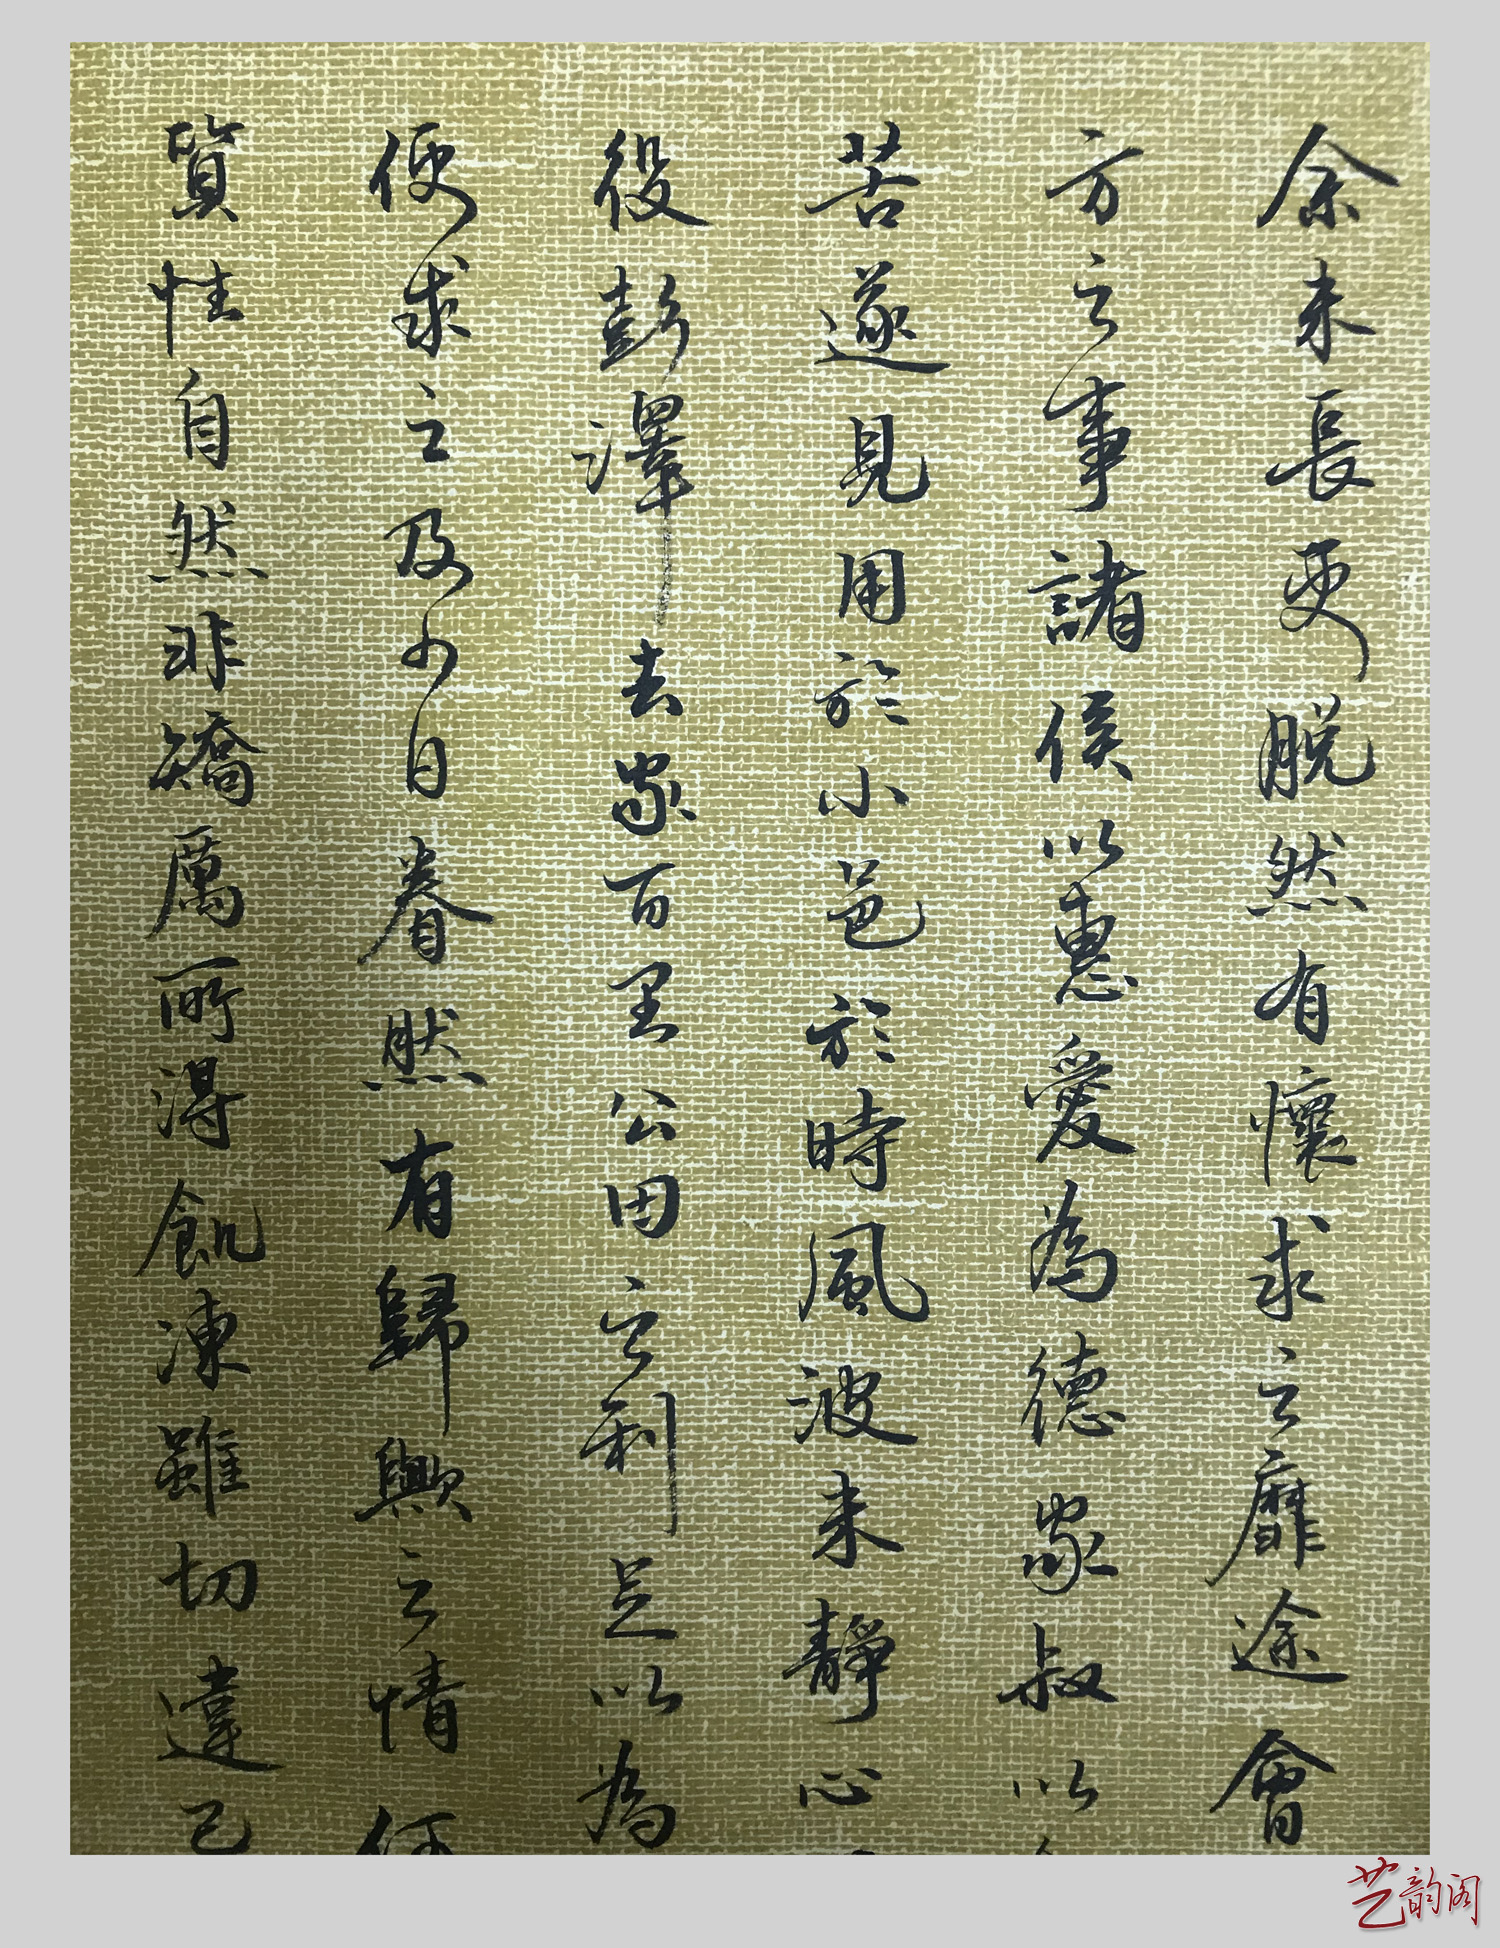 余未長更脱然有懷求之靡途會
方之事諸侯以惠愛為德家叔以
苦遂見用於小邑於時風波未靜心
役彭澤去家百里公田之利足以為
便求之及少日眷然有歸歟之情何
質性自然非矯厲所得飢凍雖切違己
艺韵阁